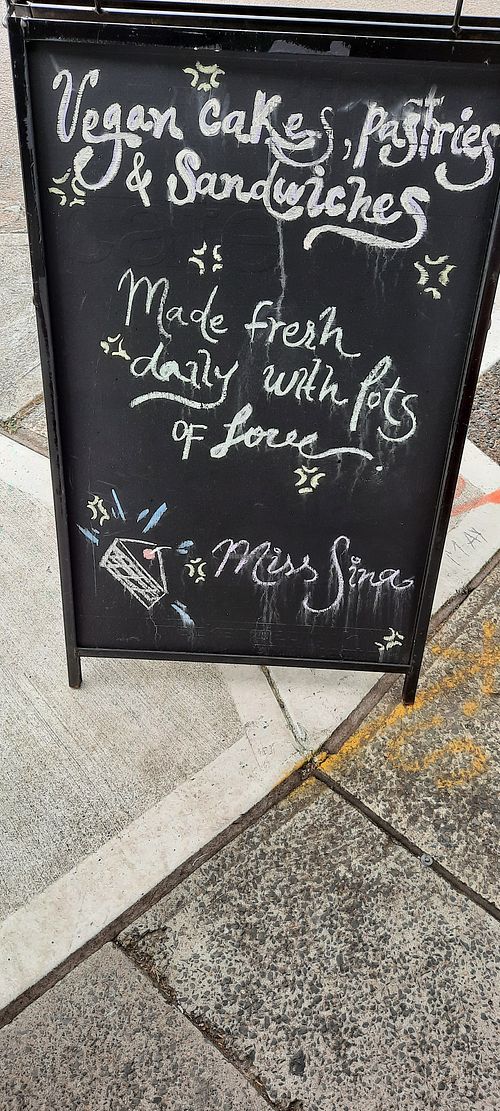 Vegan cakes, pastries
& Sandwiches
Made fresh
daily with lots
of Love.
Miss Sina